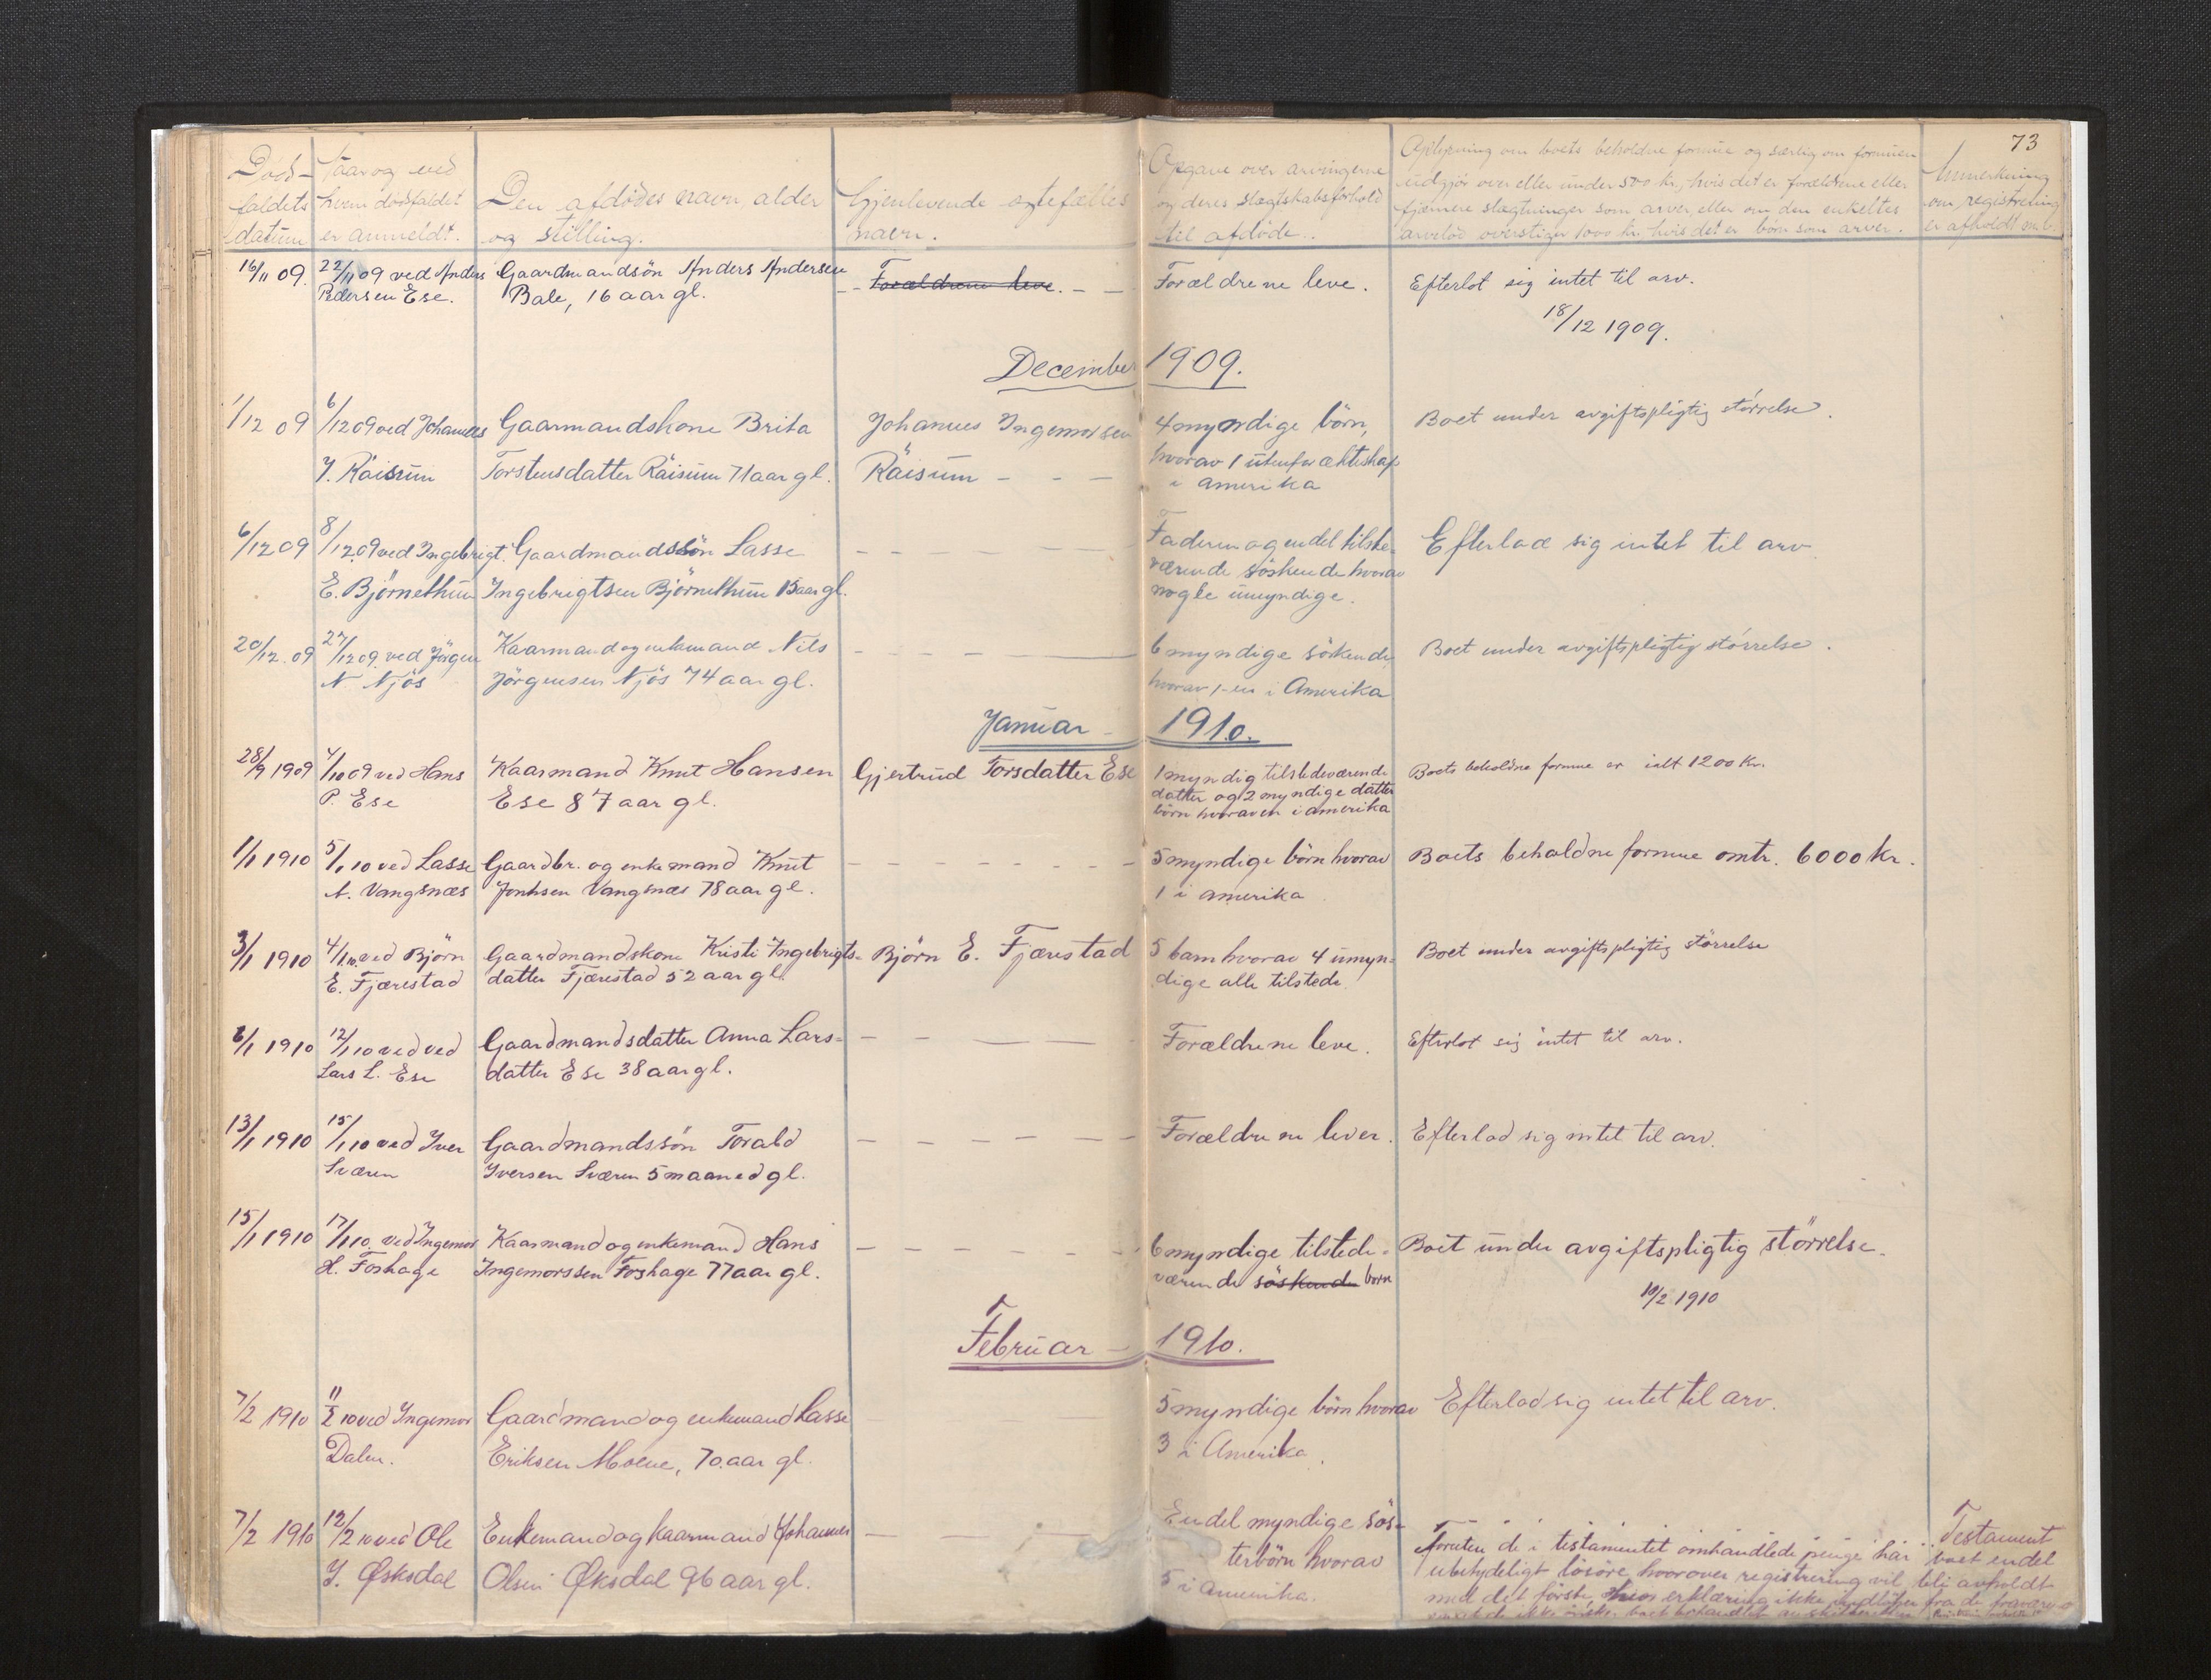 73
Död-
faldets
datum
Naar og ved
hvem dödsfaldet
er anmeldt.
Den afdödes navn, alder
og stilling.
Gjenlevende egtefælles
navn.
Opgave over arvingerne
og deres slægtskabsforhold
til afdöde.
Oplysning om boets beholdne formue og særlig om formuen
udgjör over eller under 500 kr, hvis det er forældrene eller
fjærnere slægtninger som arver, eller om den enkeltes
arvelod overstiger 1000 kr. hvis det er börn som arver.
Anmerkning
om registrering
er afholdt m.v.
16/11 09. 22/11 09 ved Anders Gaardmandsön Anders Andersen - - Forældrene leve. - - Forældrene leve. Efterlot sig intet til arv.
Pedersen Ese. Bale, 16 aar gl.
18/12 1909.
December 1909.
1/12 09 6/12 09 ved Johannes Gaarmandskone Brita Johannes Ingemorsen 4 myndige börn, Boet under avgiftspligtig störrelse.
J. Räisum Torstensdatter Räisum 71 aar gl. Räisum - - - hvorav 1 utenfor ækteskap
i amerika
6/12 09 8/12.09 ved Ingebrigt Gaardmandssön Lasse - - - - - Faderen og endel tilste- Efterlod sig intet til arv.
E. Björnethun Ingebrigtsen Björnethun 15 aar gl. værende söskende hvorav
nogle umyndige.
20/12.09 27/12 09. ved Jörgen Kaarmand og enkemand Nils - - - - 6 myndige söskende, Boet under avgiftspligtig störrelse.
N Njös Jörgensen Njös 74 aar gl. hvorav 1-en i Amerika
Januar - 1910.
28/9 1909 4/10 09 ved Hans Kaarmand Knut Hansen Gjertrud Torsdatter Ese 1 myndig tilstedeværende Boets beholdne formue er ialt 1200 Kr.
P. Ese Ese 87 aar gl. datter og 2 myndige datter
börn hvorav en i amerika
1/1 1910 5/1 10 ved Lasse Gaardbr. og enkemand Knut - - - - - - - 5 myndige börn hvorav Boets beholdne formue omtr. 6000 kr.
A. Vangsnæs Jonhsen Vangsnæs 78 aar gl. 1 i amerika
3/1 1910 4/1 10. ved Björn Gaardmandskone Kristi Ingebrigts- Björn E. Fjærestad 5 barn hvorav 4 umyn- Boet under avgiftspligtig störrelse
E. Fjærestad datter Fjærestad 52 aar gl. dige alle tilstede.
6/1 1910 12/1 10 ved ved Gaardmandsdatter Anna Lars- - - - - Forældrene leve. Efterlot sig intet til arv.
Lars L. Ese datter Ese 38 aar gl.
13/1 1910 15/1 10 ved Iver Gaardmandssön Torald - - - - - - Forældrene lever. Efterlod sig intet til arv.
Sværen Iversen Sværen 5 maaned gl.
15/1 1910 17/1 10. ved Ingemor Kaarmand og enkemand Hans - - - - - - 6 myndige tilstede- Boet under avgiftspligtig störrelse.
H. Foshage Ingemorssen Foshage 77 aar gl. værende söskende born
10/2 1910
Februar - 1910.
7/2 1910 11/2 10 ved Ingemor Gaardmand og enkemand Lasse 5 myndige börn hvorav Efterlod sig intet til arv.
Dalen. Eriksen Moene, 70. aar gl. 3 i Amerika.
7/2 1910 12/2 10 ved Ole Enkemand og kaarmand Johannes - - - Endel myndige sös- Foruten de i testamentet omhandlede penge har boet endel Testament
J. Øsksdal Olsen Øksdal 96 aar gl. terbörn hvorav ubetydeligt lösöre hvorover registrering vil bli avholdt
5 i amerika. med det förste, erklæring ikke indlöper fra de fravær-